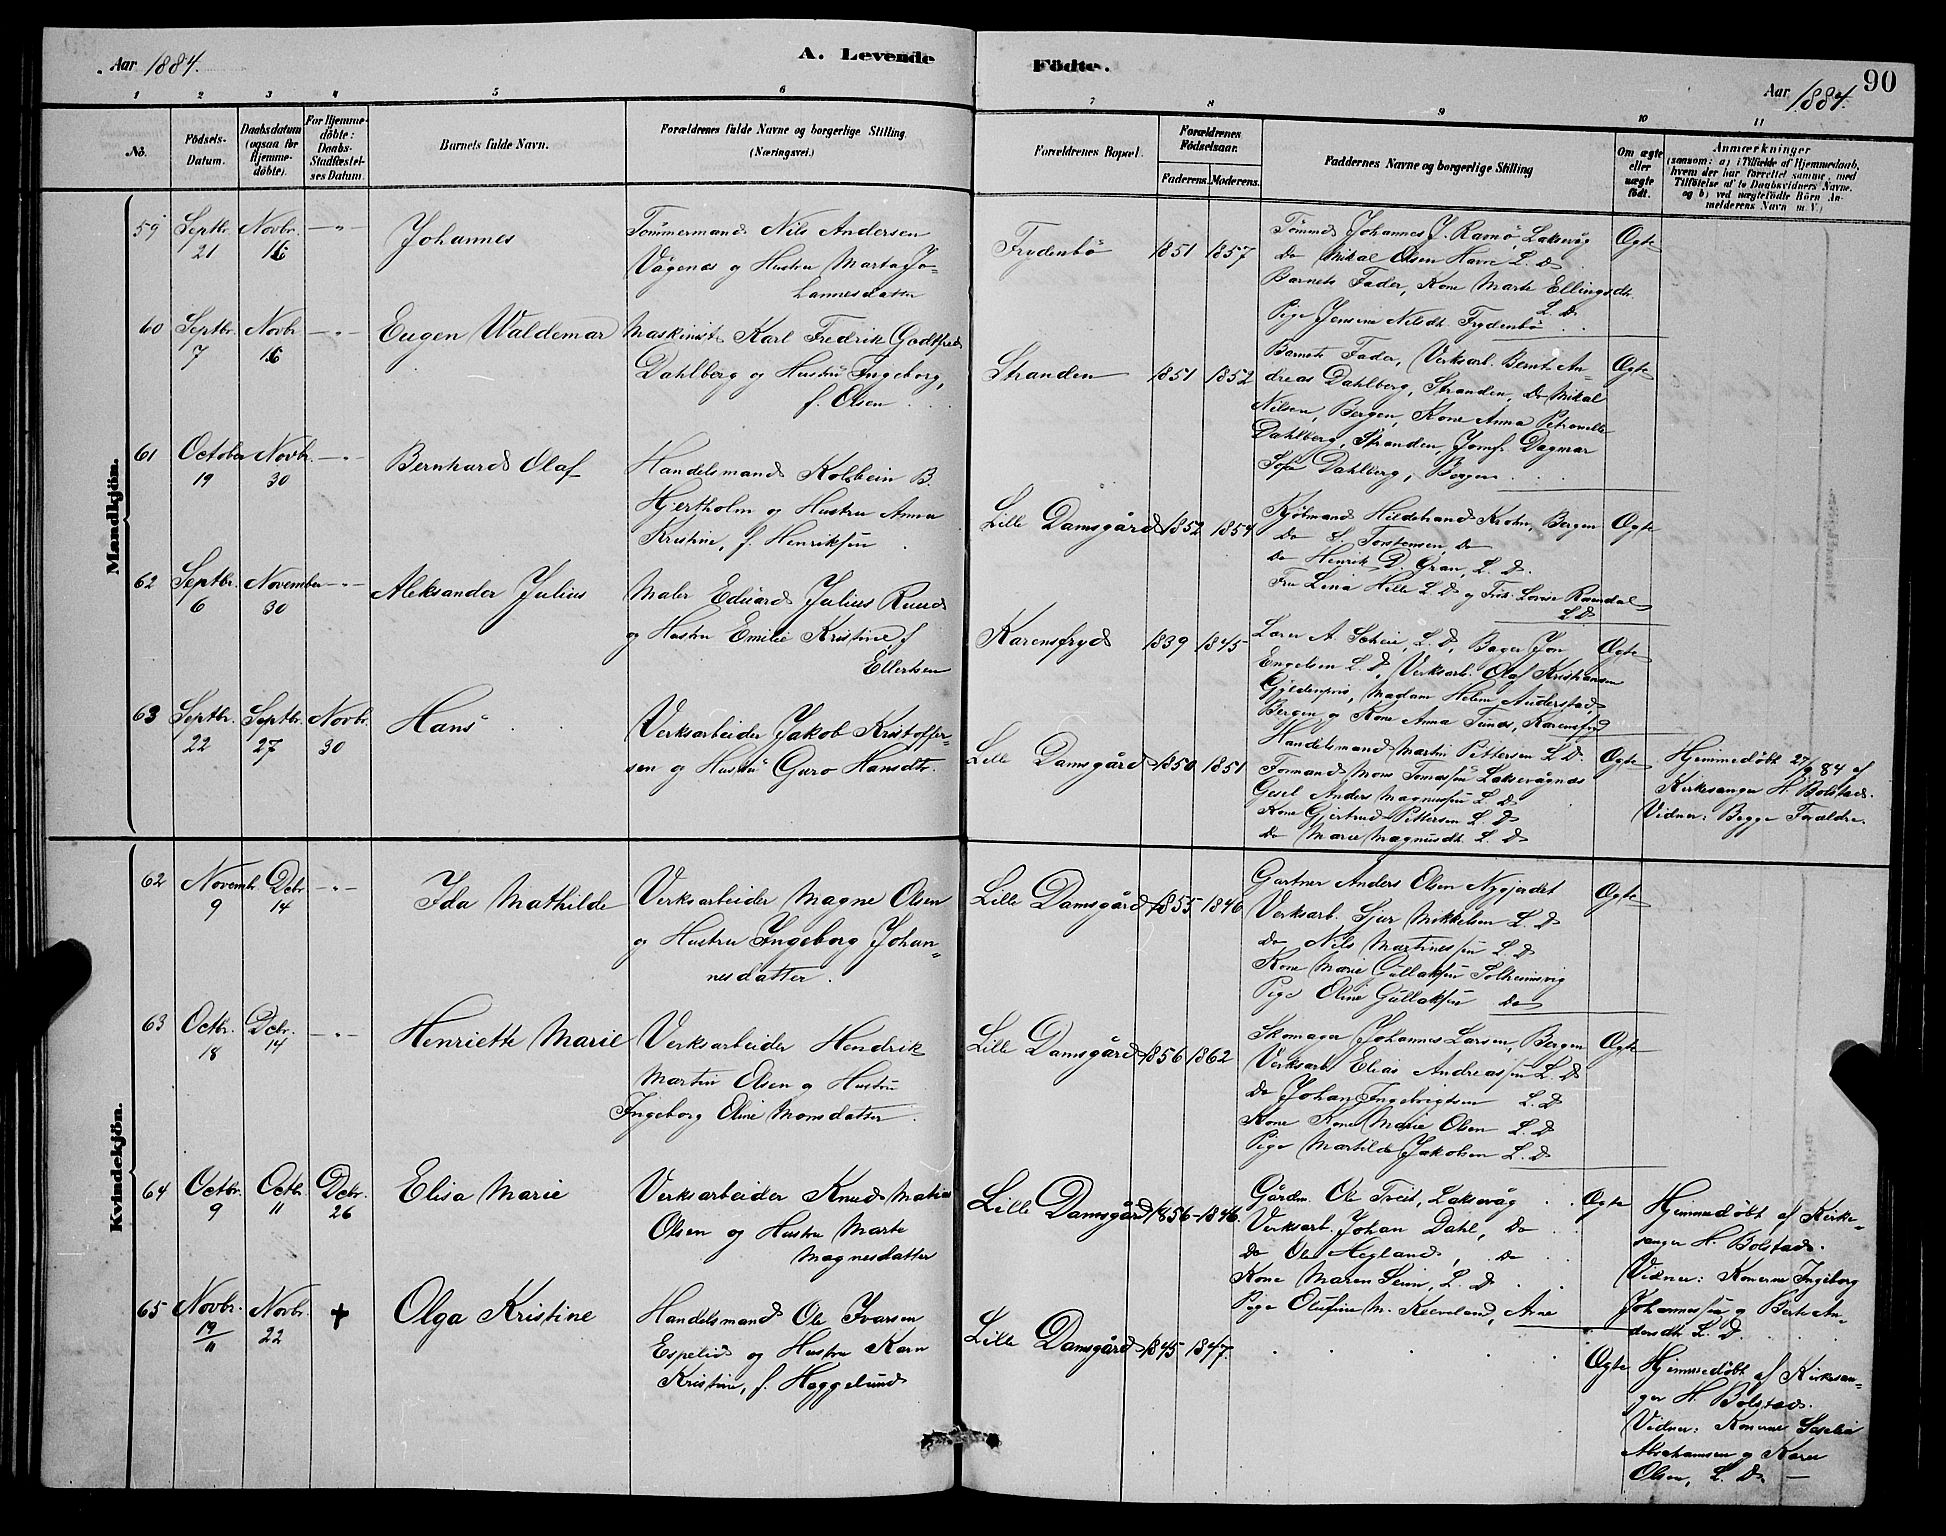 Aar 1884.
A. Levende
Födte.
Aar 1884.
90
1 2 3 4 5 6 7 8 9 10 11
No.
Födsels-Datum.
Daabsdatum (ogsaa for Hjemme-döbte).
For Hjemme-döbte: Daabs-Stadfæstel-ses Datum.
Barnets fulde Navn.
Forældrenes fulde Navne og borgerlige Stilling. (Næringsvei.)
Forældrenes Bopæl.
Forældrenes Födselsaar.
Faderens. Moderens.
Faddernes Navne og borgerlige Stilling
Om ægte eller uægte födt.
Anmærkninger
(saasom: a) i Tilfælde af Hjemmedaab, hvem der har forrettet samme, med Tilföielse af to Daabsvidners Navne, og b) ved uægtefödte Börn An-melderens Navn m. V.)
Mandkjön.
59 Septbr. 21 Novbr. 16 -"- Johannes
Tömmermand Nils Andersen
Vågenes og Hustru Marta Jo-
hannesdatter
Frydenbö 1851 1857
Tömmd Johannes J. Ramö, Laksevåg
Do Mikal Olsen Havre L. D.
Barnets Fader, Kone Marte Ellingsdtr.
L. D.
Pige Jensine Nilsdt. Frydenbö
Ægte
60 Septbr. 7 Novbr. 16 -"- Eugen Waldemar
Maskinist Karl Fredrik Godtfred
Dahlberg og Hustru Ingeborg,
f. Olsen
Stranden 1851 1852
Barnets Fader, Verksarb. Bernt An-
dreas Dahlberg, Stranden, Do Mikal
Nilsen, Bergen, Kone Anna Petronelle
Dahlberg, Stranden, Jomf. Dagmar
Sofie Dahlberg, Bergen
Ægte
61 October 19 Novbr. 30 -"- Bernhard Olaf
Handelsmand Kolbein B.
Hjertholm og Hustru Anna
Kristine, f. Henriksen
Lille Damsgård 1852 1854
Kjöbmand Hildebrand Krohn, Bergen
Do S. Torstensen, Do
Do Henrik D. Gran, L. D.
Fru Lina Hille L. D. og Frk. Lovise Ramdal
L. D.
Ægte
62 Septbr. 6 November 30 -"- Aleksander Julius
Maler Eduard Julius Ruud
og Hustru Emilie Kristine, f.
Ellertsen
Karensfryd 1839 1845
Lærer A. Scheie, L. D., Bager Jon
Engelsen L. D., Verksarb. Olaf Kristiansen
Gyldenpris, Madam Helene Anderstad,
Bergen og Kone Anna Tunes, Karensfryd
Ægte
63 Septbr. 22 Septbr. 27 Novbr. 30 Hans
Verksarbeider Jakob Kristoffer-
sen og Hustru Guro Hansdtr.
Lille Damsgård 1850 1851
Handelsmand Martin Pettersen L. D.
Formand Mons Tomassen Laksevågnes
Gesel Anders Magnussen L. D.
Kone Gjertrud Pettersen L. D.
Do Marie Magnusdt. L. D.
Ægte
Hjemmedöbt 27/9 84 af
Kirkesanger H. Bolstad.
Vidner: Begge Forældre.
Kvindekjön.
62 Novembr. 9 Dcbr. 14 -"- Ida Mathilde
Verksarbeider Magne Olsen
og Hustru Ingeborg Johan-
nesdatter.
Lille Damsgård 1855 1846
Gartner Anders Olsen Nygjerdet
Verksarb. Sjur Mikkelsen L. D.
Do Nils Martinessen L. D.
Kone Marie Gullaksen Solheimsvig
Pige Oline Gullaksen Do
Ægte
63 Octbr. 18 Dcbr. 14 -"- Henriette Marie
Verksarbeider Hendrik
Martin Olsen og Hustru
Ingeborg Oline Monsdatter.
Lille Damsgård 1856 1862
Skomager Johannes Larsen, Bergen
Verksarb Elias Andreassen L. D.
Do Johan Ingebrigtsen L. D.
Kone Kone Marie Olsen L. D.
Pige Martilde Jakobsen L. D.
Ægte
64 Octbr. 9 Octb. 11 Dcbr. 26 Elisa Marie
Verksarbeider Knud Matias
Olsen og Hustru Marte
Magnesdatter
Lille Damsgård 1856 - 1846.
Gårdm. Ole Treit, Laksevåg
Verksarb. Johan Dahl, Do
Do Ole Hegland, Do
Kone Maren Seim, L. D.
Pige Olufine M. Kleveland, Arne
Ægte
Hjemmedöbt af Kirke-
sanger H. Bolstad.
Vidner: Konerne Ingeborg
Johannessen og Berte An-
dersdt. L. D.
65 Novbr. 19/11 Novbr. 22 + Olga Kristine
Handelsmand Ole Ivarsen
Espelid og Hustru Karn
Kristine, f. Heggelund
Lille Damsgård 1845 1847.
Ægte
Hjemmedöbt af Kirkesan-
ger H. Bolstad.
Vidner: Konerne
Abrahamsen og Karen
Olsen, L. D.